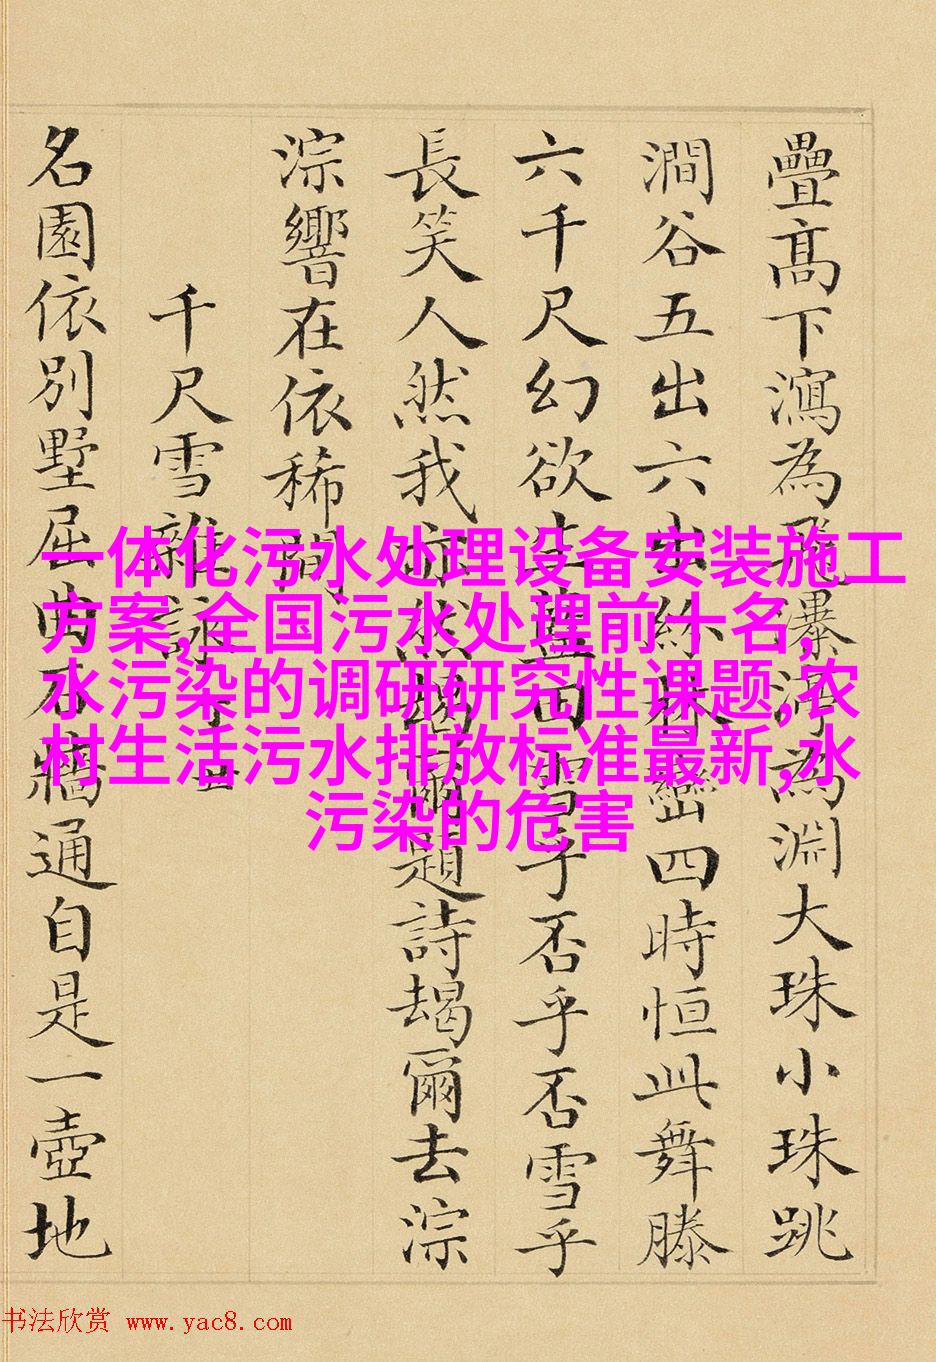 疊高下瀉為飛瀑渟為淵大珠小珠跳
澗谷五出六出紛巒四時恒此舞滕
六千尺幻欲生藍田雪乎否乎否雪乎
長笑人然我亦然朅爾題詩朅爾去淙
淙響在依稀間
千尺雪雜詠
名園依別墅屈曲石牆通自是一壺地
一体化污水处理设备安装施工
方案,全国污水处理前十名,
水污染的调研研究性课题,农
村生活污水排放标准最新,水
污染的危害
书法欣赏 www.yac8.com